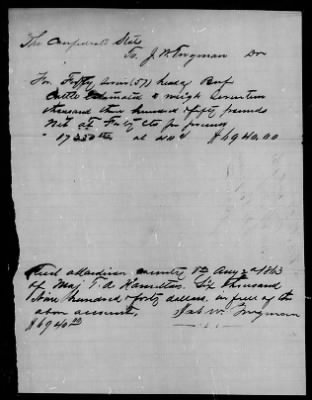 The Confederate States
To J. W. Tingman Dr
For Fifty seven (57) head of Beef
Cattle Estimated to weigh seventeen
thousand three hundred fifty pounds
Net at Forty cts per pound
17350 lbs at 40 c $6940.00
Recd Madison county Aug 1863
of Maj. T. A. Hamilton Six thousand
Nine hundred forty dollars in full of the
above account,
$6940